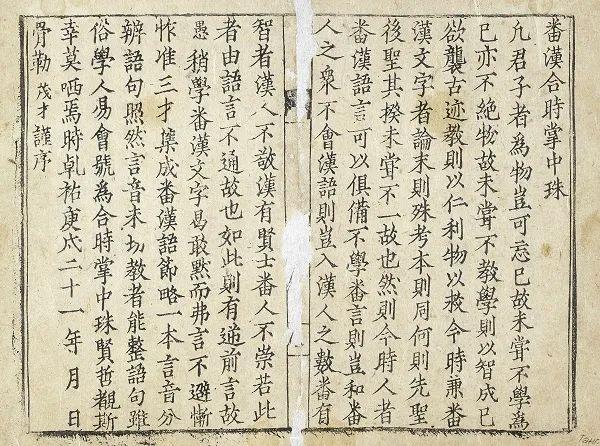 番漢合時掌中珠
凢君子者為物豈可忘已故未甞不學為
已亦不絶物故未甞不教學則以智成已
欲襲古迹教則以仁利物以救今時兼番
漢文字者論末則殊考本則同何則先聖
後聖其揆未甞不一故也然則今時人者
番漢語言可以俱備不學番言則豈和番
人之衆不會漢語則豈入漢人之數番有
智者漢人不敬漢有賢士番人不崇若此
者由語言不通故也如此則有逆前言故
愚稍學番漢文字曷敢默而弗言不避慚
怍准三才集成番漢語節略一本言音分
辨語句照然言音未切教者能整語句雖
俗學人易會號為合時掌中珠賢哲覩斯
幸莫哂焉時乹祐庚戌二十一年 月 日
骨勒 茂才 謹序